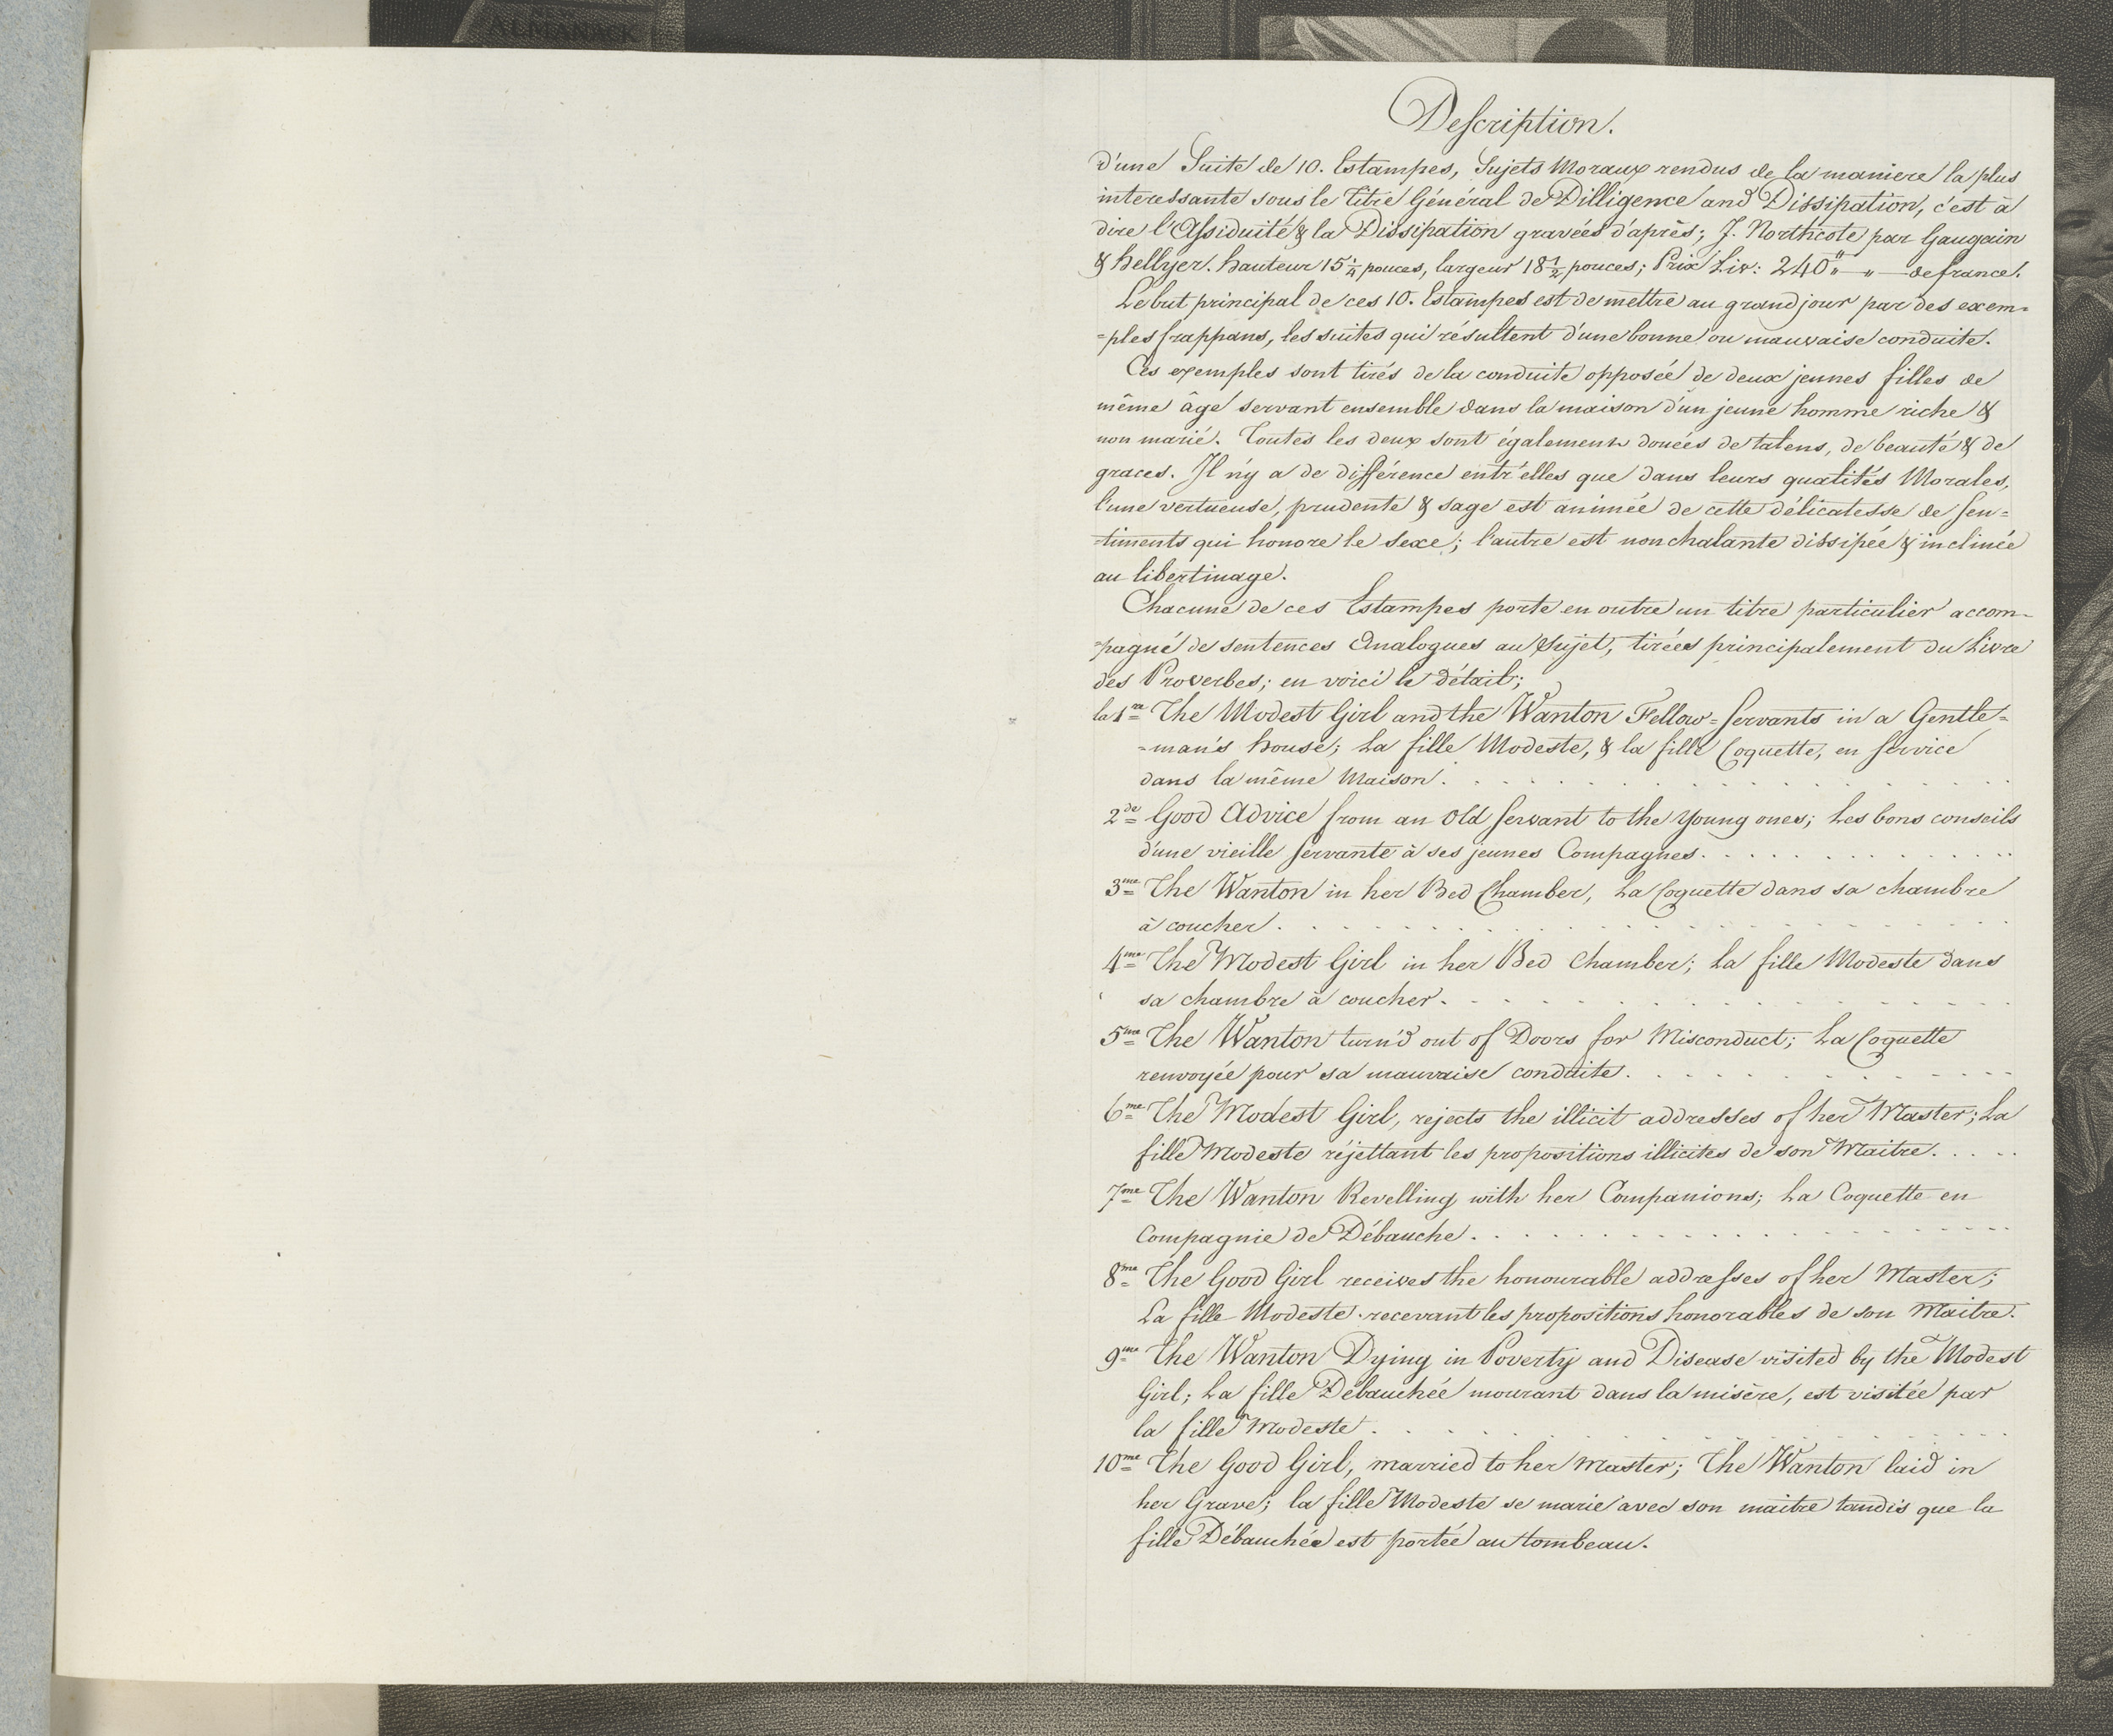 ALMANACK
Description.
d'une Suite de 10. Estampes, Sujets Moraux rendus de la maniere la plus
interessante sous le Titre Général de Dilligence and Dissipation, c'est à
dire l'Assiduité & la Dissipation gravées d'après; J. Northcote par Gaugain
& Hellyer. hauteur 15 1/4 pouces, largeur 18 1/2 pouces; Prix Liv: 240 " — " — de france.
Le but principal de ces 10. Estampes est de mettre au grand jour par des exem=
=ples frappans, les suites qui résultent d'une bonne ou mauvaise conduite.
Ces exemples sont tirés de la conduite opposée de deux jeunes filles de
même âge servant ensemble dans la maison d'un jeune homme riche &
non marié. Toutes les deux sont également douées de talens, de beauté & de
graces. Il n'y a de différence entr'elles que dans leurs qualités Morales,
l'une vertueuse, prudente & sage est animée de cette délicatesse de sen=
=timents qui honore le sexe; l'autre est nonchalante dissipée & inclinée
au libertinage.
Chacune de ces Estampes porte en outre un titre particulier accom=
=pagné de sentences Analogues au Sujet, tirées principalement du Livre
des Proverbes; en voici le détail;
la 1re The Modest Girl and the Wanton Fellow=Servants in a Gentle=
=man's house; La fille Modeste, & la fille Coquette, en Service
dans la même Maison.
2de Good Advice from an Old Servant to the Young ones; Les bons conseils
d'une vieille Servante à ses jeunes Compagnes.
3me The Wanton in her Bed Chamber, La Coquette dans sa chambre
à coucher.
4me The Modest Girl in her Bed Chamber; La fille Modeste dans
sa chambre à coucher.
5me The Wanton turn'd out of Doors for Misconduct; La Coquette
renvoyée pour sa mauvaise conduite.
6me The Modest Girl, rejects the illicit addresses of her Master; La
fille Modeste réjettant les propositions illicites de son Maitre.
7me The Wanton Revelling with her Companions; La Coquette en
Compagnie de Débauche.
8me The Good Girl receives the honourable addresses of her Master;
La fille Modeste recevant les propositions honorables de son Maitre.
9me The Wanton Dying in Poverty and Disease visited by the Modest
Girl; La fille Débauchée mourant dans la misère, est visitée par
la fille Modeste.
10me The Good Girl, married to her Master; The Wanton laid in
her Grave; la fille Modeste se marie avec son maitre tandis que la
fille Débauchée est portée au tombeau.